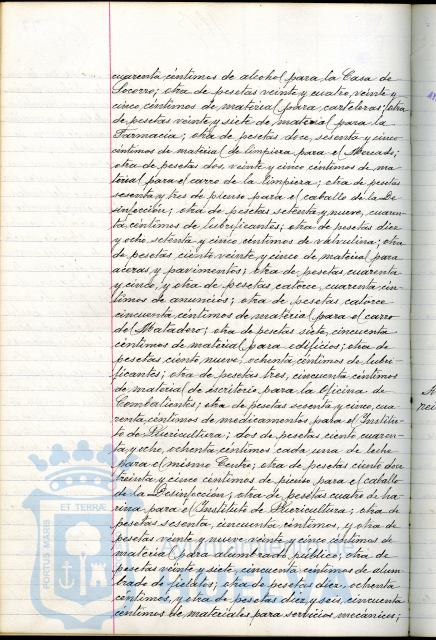 cuarenta céntimos de alcohol para la Casa de
Socorro; otra de pesetas veinte y cuatro, veinte y
cinco céntimos de material para carteleras; otra
de pesetas veinte y siete de material para la
Farmacia; otra de pesetas doce, sesenta y cinco
céntimos de material de limpieza para el Mercado;
otra de pesetas dos, veinte y cinco céntimos de ma-
terial para el carro de la limpieza; otra de pesetas
sesenta y tres de pienso para el caballo de la De-
sinfección; otra de pesetas setenta y nueve, cuaren-
ta céntimos de lubrificantes; otra de pesetas diez
y ocho, setenta y cinco céntimos de valvulina; otra
de pesetas ciento veinte y cinco de material para
aceras y pavimentos; otra de pesetas cuarenta
y cinco, y otra de pesetas catorce, cuarenta cén-
timos de anuncios; otra de pesetas catorce
cincuenta céntimos de material para el carro
del Matadero; otra de pesetas siete, cincuenta
céntimos de material para edificios; otra de
pesetas ciento nueve, ochenta céntimos de lubri-
ficantes; otra de pesetas tres, cincuenta céntimos
de material de escritorio para la Oficina de
Combatientes; otra de pesetas sesenta y cinco, cua-
renta céntimos de medicamentos para el Institu-
to de Puericultura; dos de pesetas ciento cuaren-
ta y ocho, ochenta céntimos cada una de leche
para el mismo Centro; otra de pesetas ciento doce
treinta y cinco céntimos de pienso para el caballo
de la Desinfección; otra de pesetas cuatro de ha-
rina para el Instituto de Puericultura; otra de
pesetas sesenta, cincuenta céntimos, y otra de
pesetas veinte y nueve veinte y cinco céntimos de
material para alumbrado público; otra de
pesetas veinte y siete, cincuenta céntimos de alum-
brado de fielatos; otra de pesetas diez, ochenta
céntimos, y otra de pesetas diez y seis, cincuenta
céntimos de materiales para servicios mecánicos;
ET TERRÆ
PORTUS MARIS